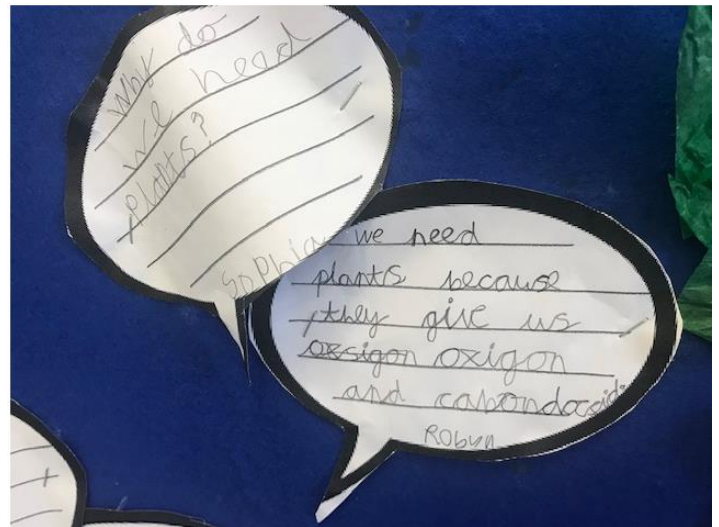 Why do
we need
plants?
Sophia
we need
plants because
they give us
oxsigon oxigon
and
Robyn